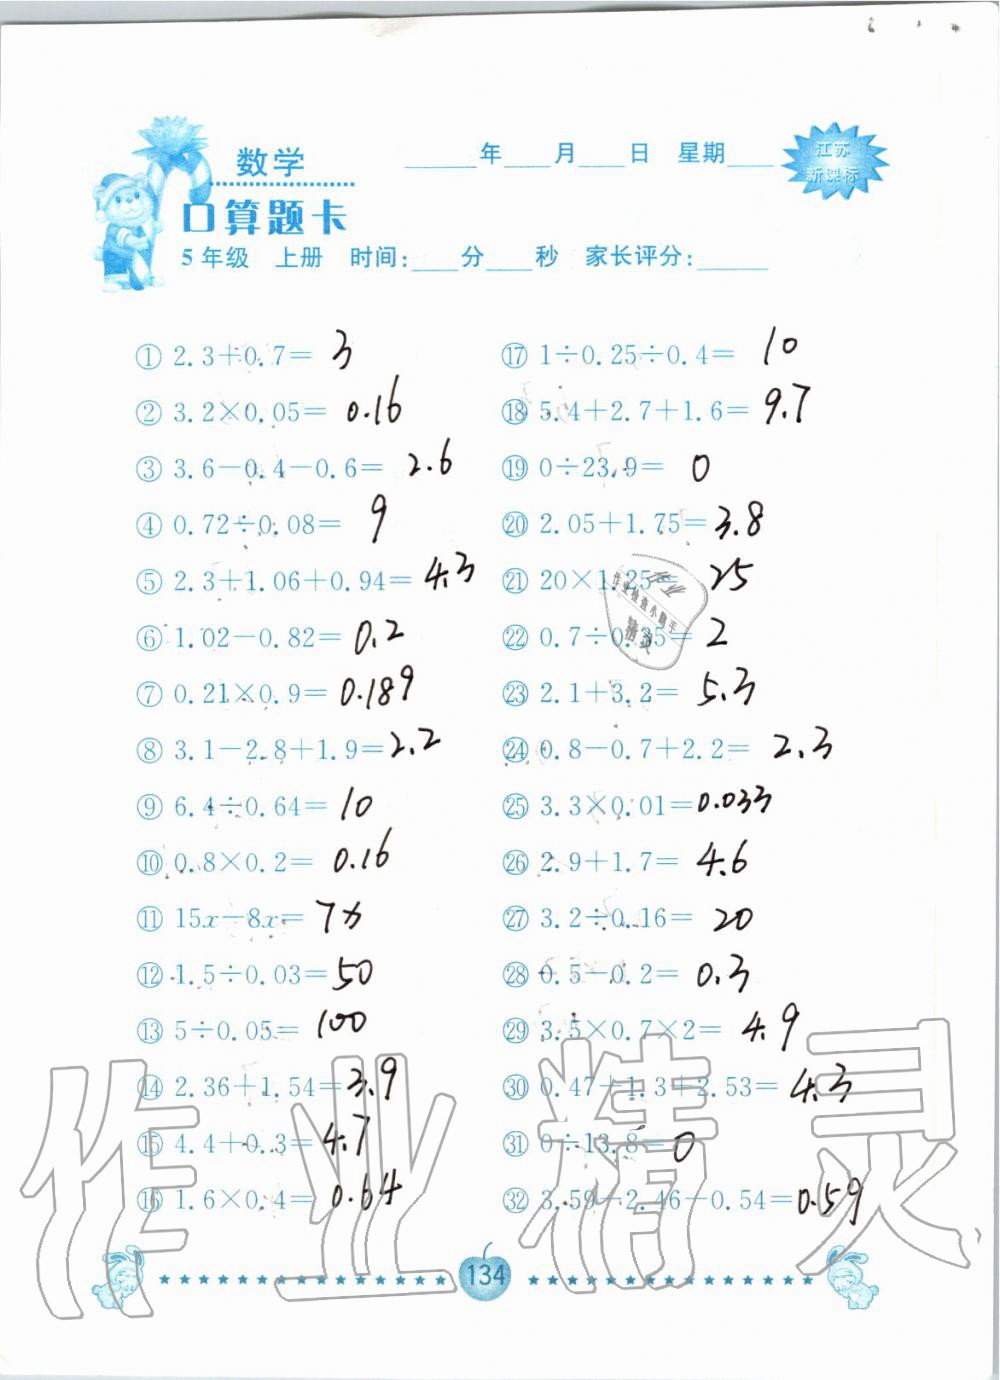 数学 ____年____月____日 星期____
江苏
新课标
口算题卡
5年级 上册 时间:____分____秒 家长评分:____
① 2.3+0.7= 3
② 3.2×0.05= 0.16
③ 3.6-0.4-0.6= 2.6
④ 0.72÷0.08= 9
⑤ 2.3+1.06+0.94= 4.3
⑥ 1.02-0.82= 0.2
⑦ 0.21×0.9= 0.189
⑧ 3.1-2.8+1.9= 2.2
⑨ 6.4÷0.64= 10
⑩ 0.8×0.2= 0.16
⑪ 15x-8x= 7x
⑫ 1.5÷0.03= 50
⑬ 5÷0.05= 100
⑭ 2.36+1.54= 3.9
⑮ 4.4+0.3= 4.7
⑯ 1.6×0.4= 0.64
⑰ 1÷0.25÷0.4= 10
⑱ 5.4+2.7+1.6= 9.7
⑲ 0÷23.9= 0
⑳ 2.05+1.75= 3.8
㉑ 20×1.25= 25
㉒ 0.7÷0.35= 2
㉓ 2.1+3.2= 5.3
㉔ 0.8-0.7+2.2= 2.3
㉕ 3.3×0.01= 0.033
㉖ 2.9+1.7= 4.6
㉗ 3.2÷0.16= 20
㉘ 0.5-0.2= 0.3
㉙ 3.5×0.7×2= 4.9
㉚ 0.47+1.3+2.53= 4.3
㉛ 0÷13.8= 0
㉜ 3.59-2.46-0.54= 0.59
作业
作业检查小助手
精灵
作业精灵
134